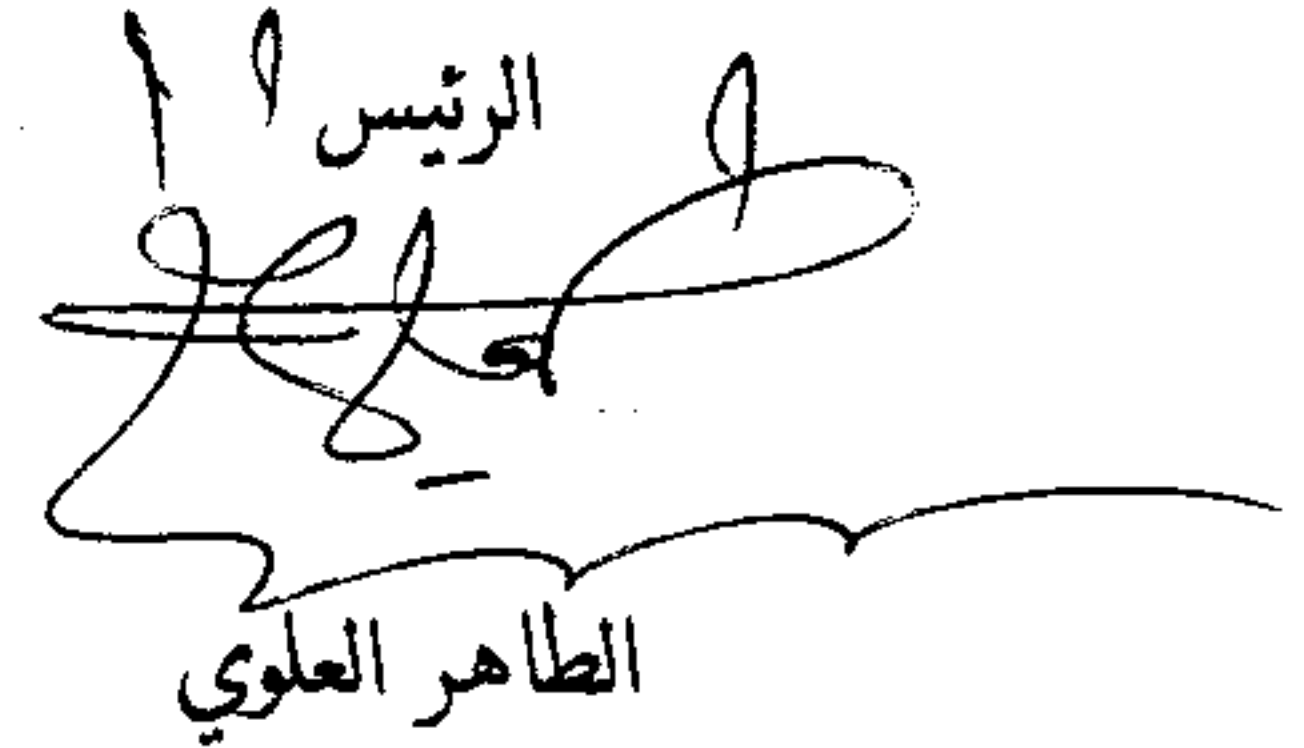 الرئيس
الطاهر العلوي